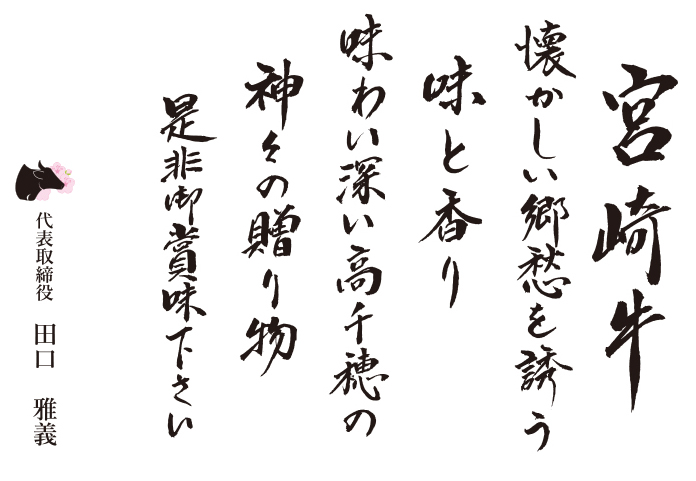 宮崎牛
懐かしい郷愁を誘う
味と香り
味わい深い高千穂の
神々の贈り物
是非御賞味下さい
代表取締役 田口 雅義